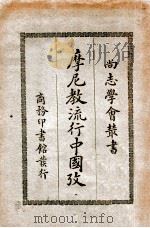 尚志學會叢書
摩尼教流行中國攷
商務印書館發行
www.toutu001.com